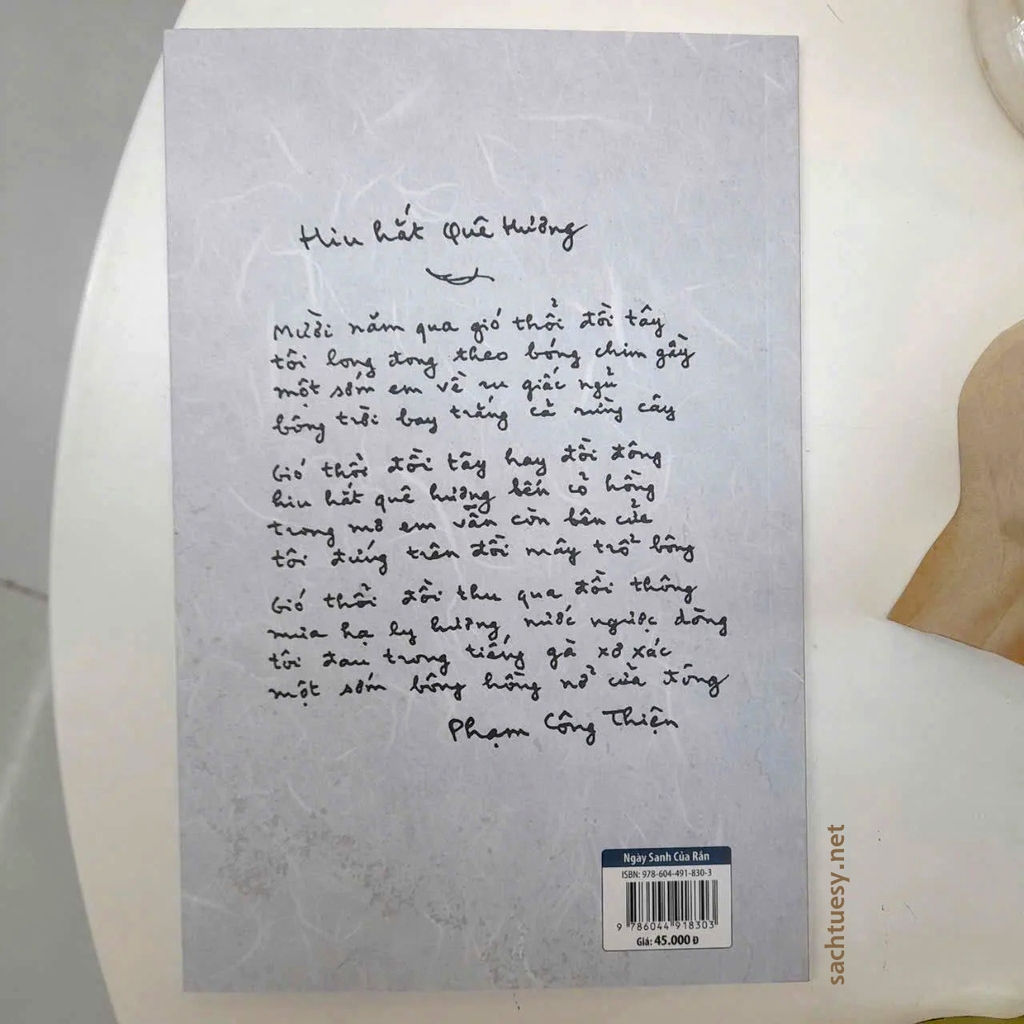 Hiu hắt Quê Hương
Mười năm qua gió thổi đồi tây
tôi long đong theo bóng chim gầy
một sớm em về ru giấc ngủ
bông trời bay trắng cả rừng cây
Gió thổi đồi tây hay đồi đông
hiu hắt quê hương bến cỏ hồng
trong mơ em vẫn còn bên cửa
tôi đứng trên đồi mây trổ bông
Gió thổi đồi thu qua đồi thông
mưa hạ ly hương nước ngược dòng
tôi đau trong tiếng gà xơ xác
một sớm bông hồng nở cửa đông
Phạm Công Thiện
Ngày Sanh Của Rắn
ISBN: 978-604-491-830-3
9 786044 918303
Giá: 45.000 Đ
sachtuesy.net